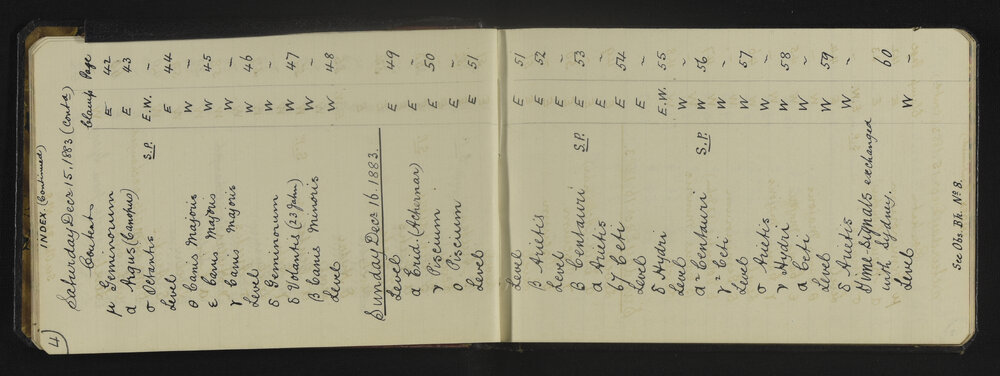 4
INDEX (Continued)
Saturday Decr 15. 1883 (Contd)
Contacts Clamp Page
μ Geminorum E 42
α Argus (Canopus) E 43
σ Octantis S.P. E.W. "
Level E 44
θ Canis Majoris W "
ε Canis Majoris W 45
γ Canis Majoris W "
Level W 46
δ Geminorum W "
δ Volantis (23 Jahn) W 47
β Canis Minoris W "
Level W 48
Sunday Decr 16. 1883.
Level E 49
α Erid. (Achernar) E "
ν Piscium E 50
ο Piscium E "
Level E 51
Level E 51
β Arietis E 52
Level E "
β Centauri S.P. E 53
α Arietis E "
67 Ceti E 54
Level E "
δ Hydri E.W. 55
Level W "
α² Centauri S.P. W 56
γ² Ceti W "
Level W 57
σ Arietis W "
ν Hydri W 58
α Ceti W "
Level W 59
δ Arietis W "
Time signals exchanged
with Sydney. 60
Level W "
See Obs. Bk. No 8.